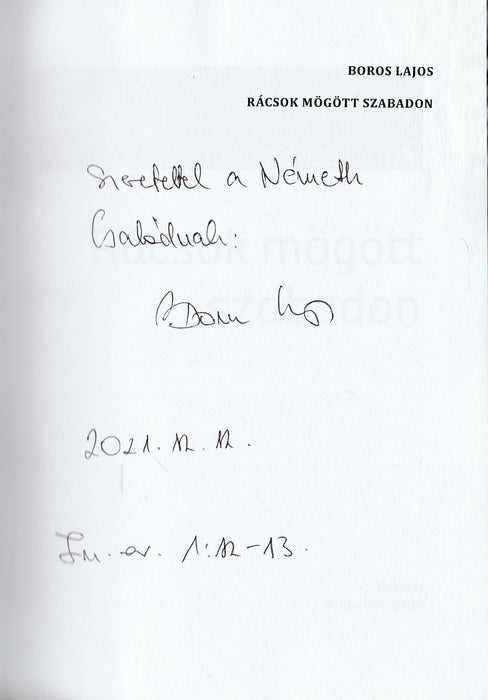 BOROS LAJOS
RÁCSOK MÖGÖTT SZABADON
Szeretettel a Németh
Családnak:
Boros Lajos
2021. 12. 12.
Jn. ev. 1:12-13.
Rácsok mögött
szabadon